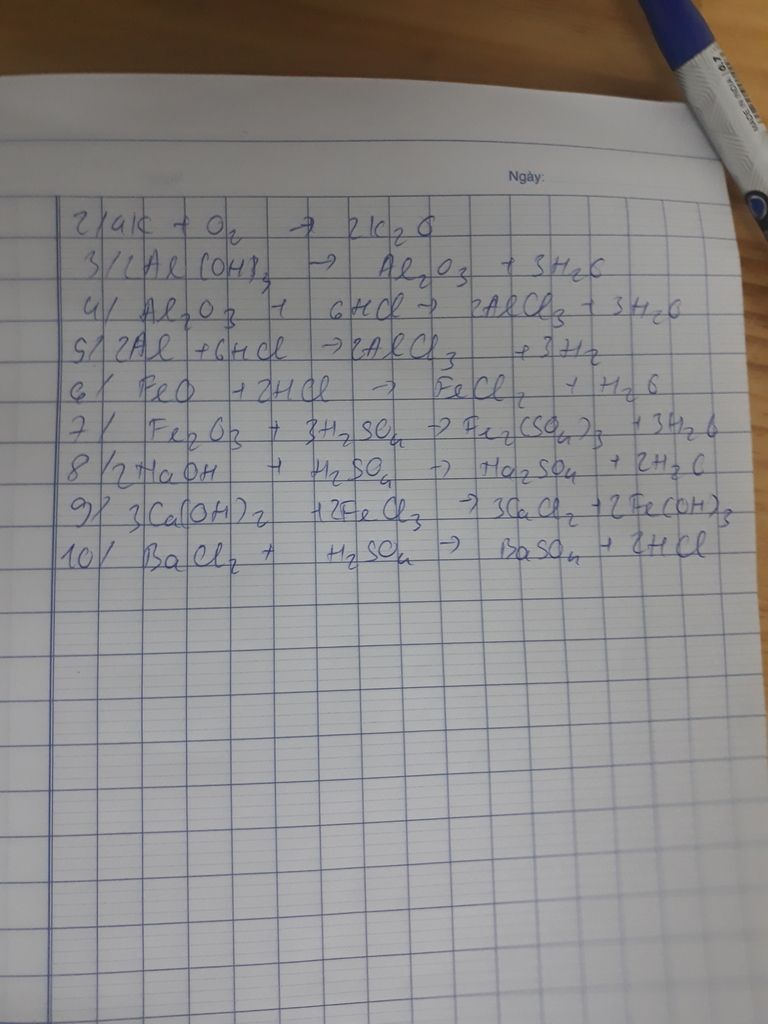 MADE IN INDIA 0.7
Ngày:
2/ 4K + O₂ → 2K₂O
3/ 2Al(OH)₃ → Al₂O₃ + 3H₂O
4/ Al₂O₃ + 6HCl → 2AlCl₃ + 3H₂O
5/ 2Al + 6HCl → 2AlCl₃ + 3H₂
6/ FeO + 2HCl → FeCl₂ + H₂O
7/ Fe₂O₃ + 3H₂SO₄ → Fe₂(SO₄)₃ + 3H₂O
8/ 2NaOH + H₂SO₄ → Na₂SO₄ + 2H₂O
9/ 3Ca(OH)₂ + 2FeCl₃ → 3CaCl₂ + 2Fe(OH)₃
10/ BaCl₂ + H₂SO₄ → BaSO₄ + 2HCl